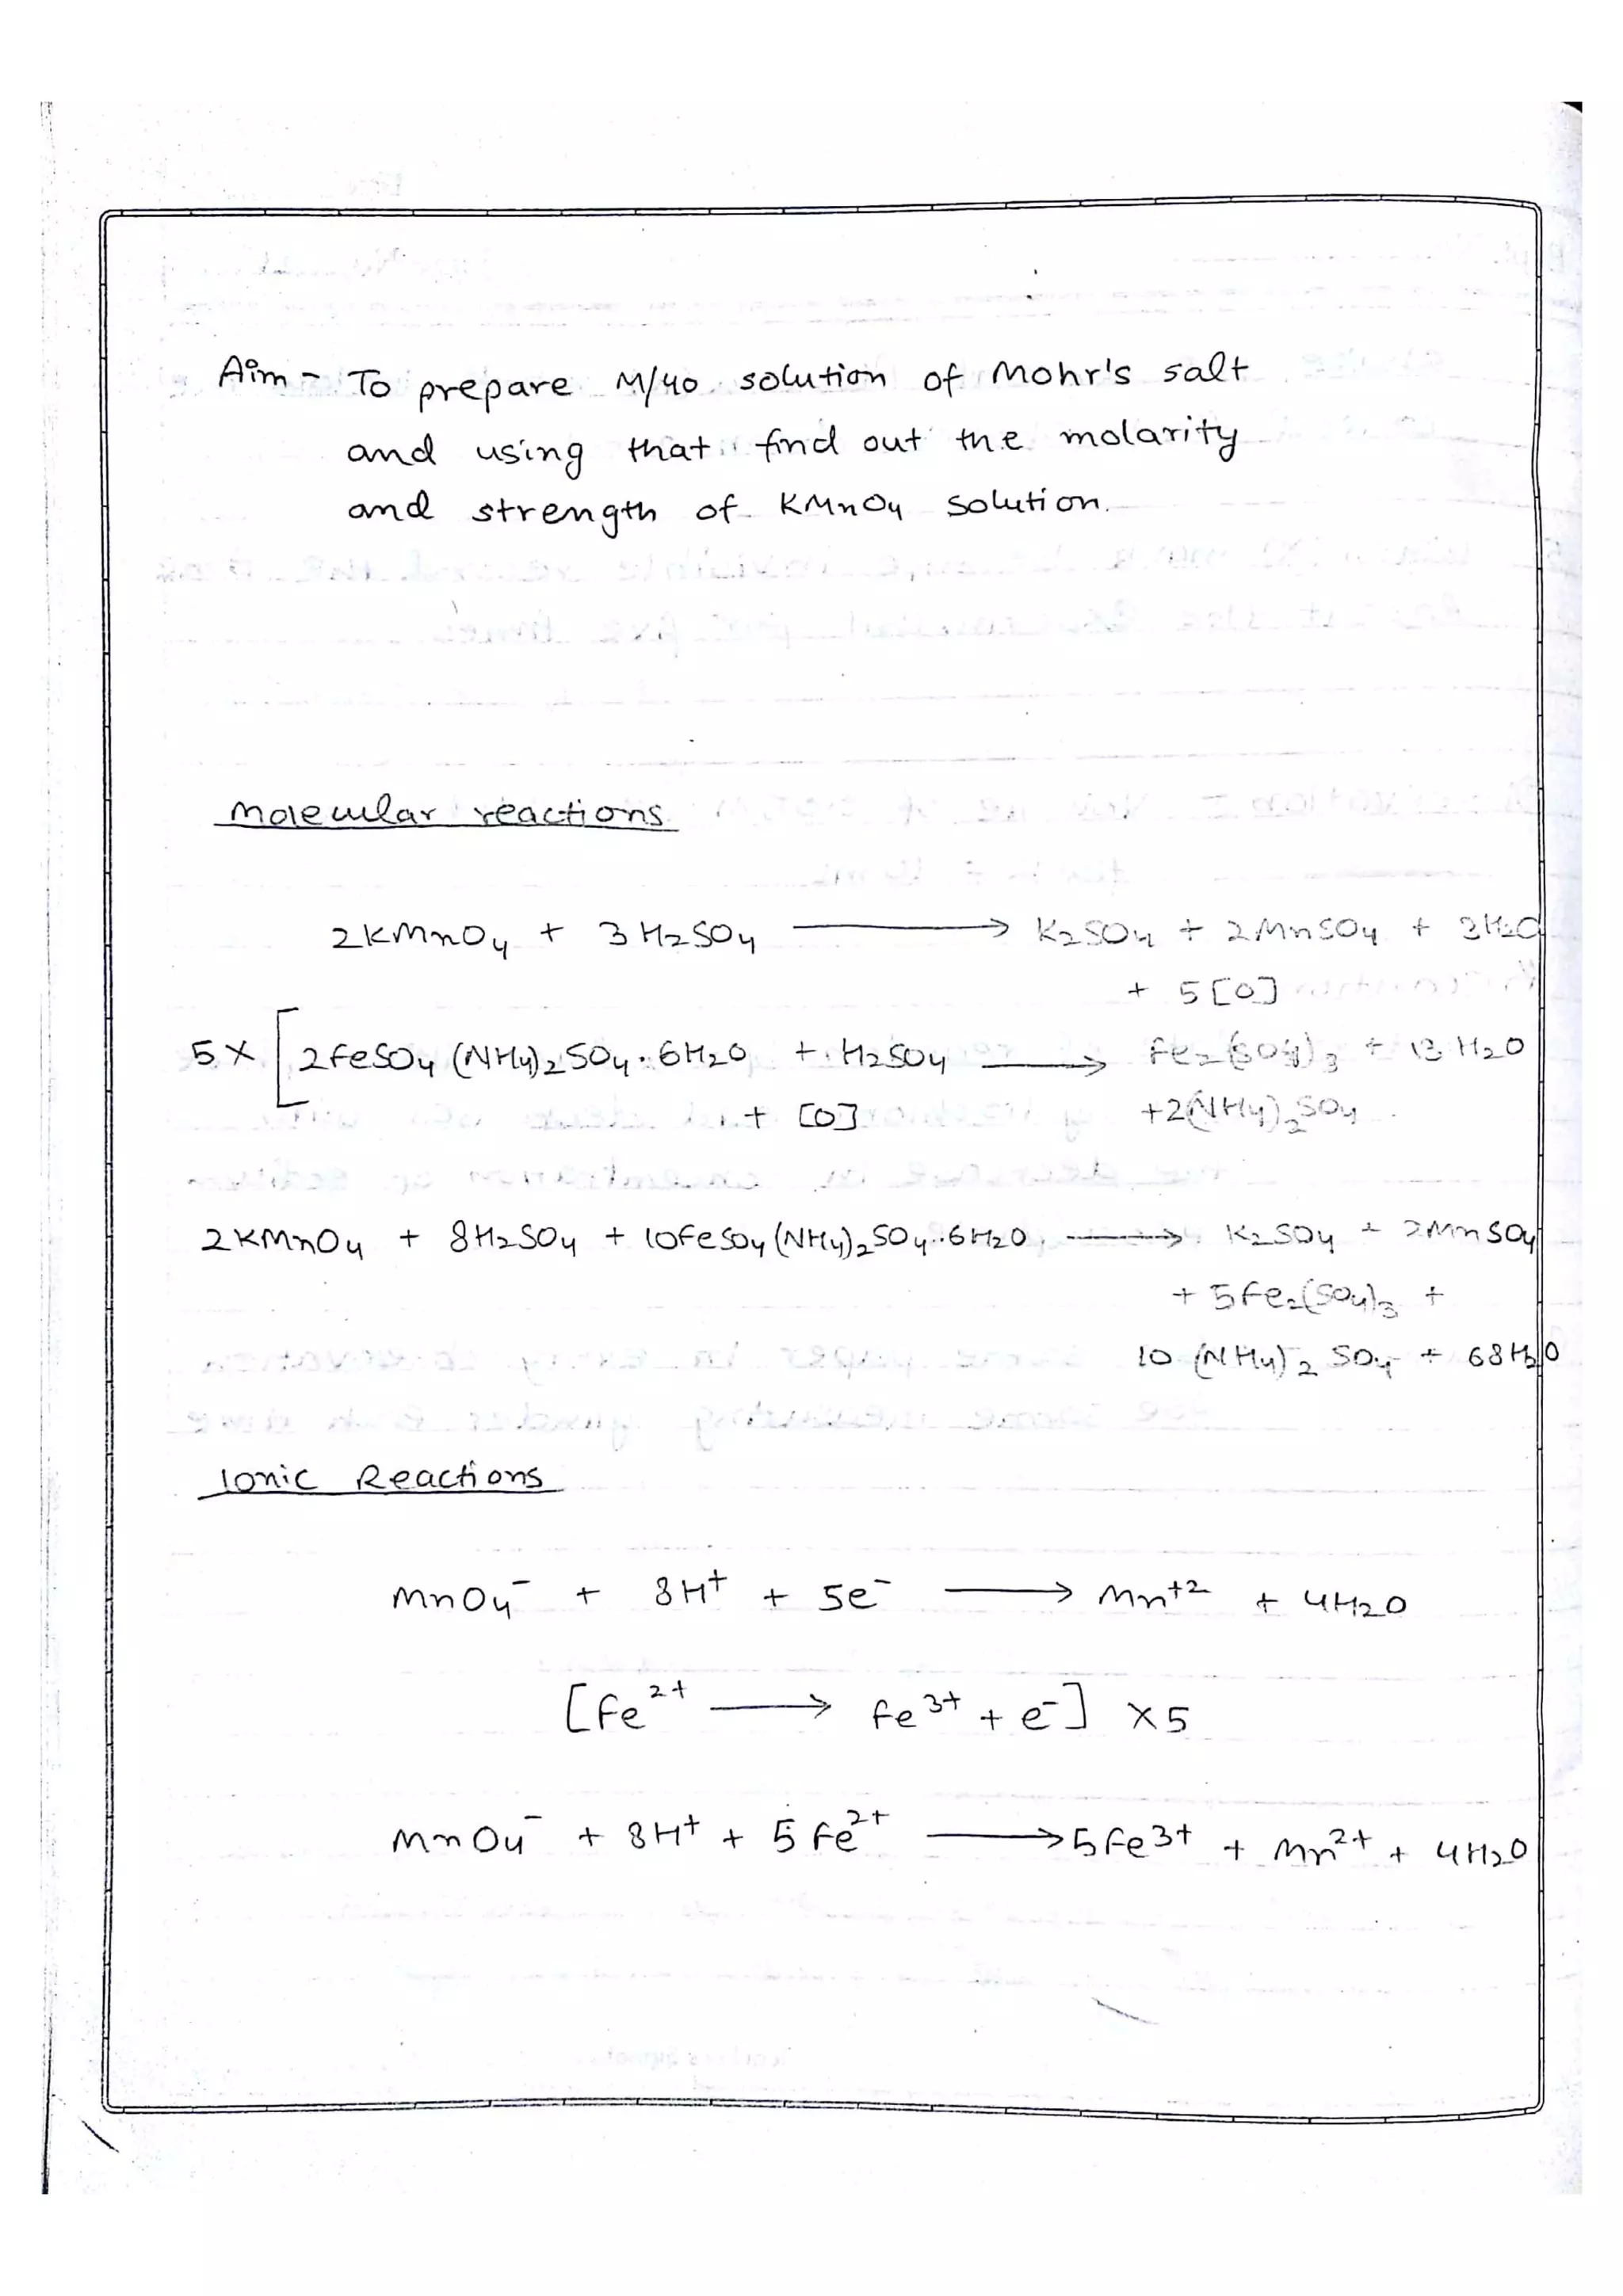 Aim - To prepare M/40 solution of Mohr's salt
and using that find out the molarity
and strength of KMnO4 solution.
Molecular reactions
2KMnO4 + 3H2SO4 ⟶ K2SO4 + 2MnSO4 + 3H2O
+ 5[O]
5 × [ 2FeSO4 (NH4)2SO4 . 6H2O + H2SO4 ⟶ Fe2(SO4)3 + 13 H2O
+ [O] +2(NH4)2SO4
2KMnO4 + 8H2SO4 + 10FeSO4 (NH4)2SO4 . 6H2O ⟶ K2SO4 + 2MnSO4
+ 5Fe2(SO4)3 +
10 (NH4)2 SO4 + 68H2O
Ionic Reactions
MnO4⁻ + 8H⁺ + 5e⁻ ⟶ Mn⁺² + 4H2O
[Fe²⁺ ⟶ Fe³⁺ + e⁻] × 5
MnO4⁻ + 8H⁺ + 5Fe²⁺ ⟶ 5Fe³⁺ + Mn²⁺ + 4H2O